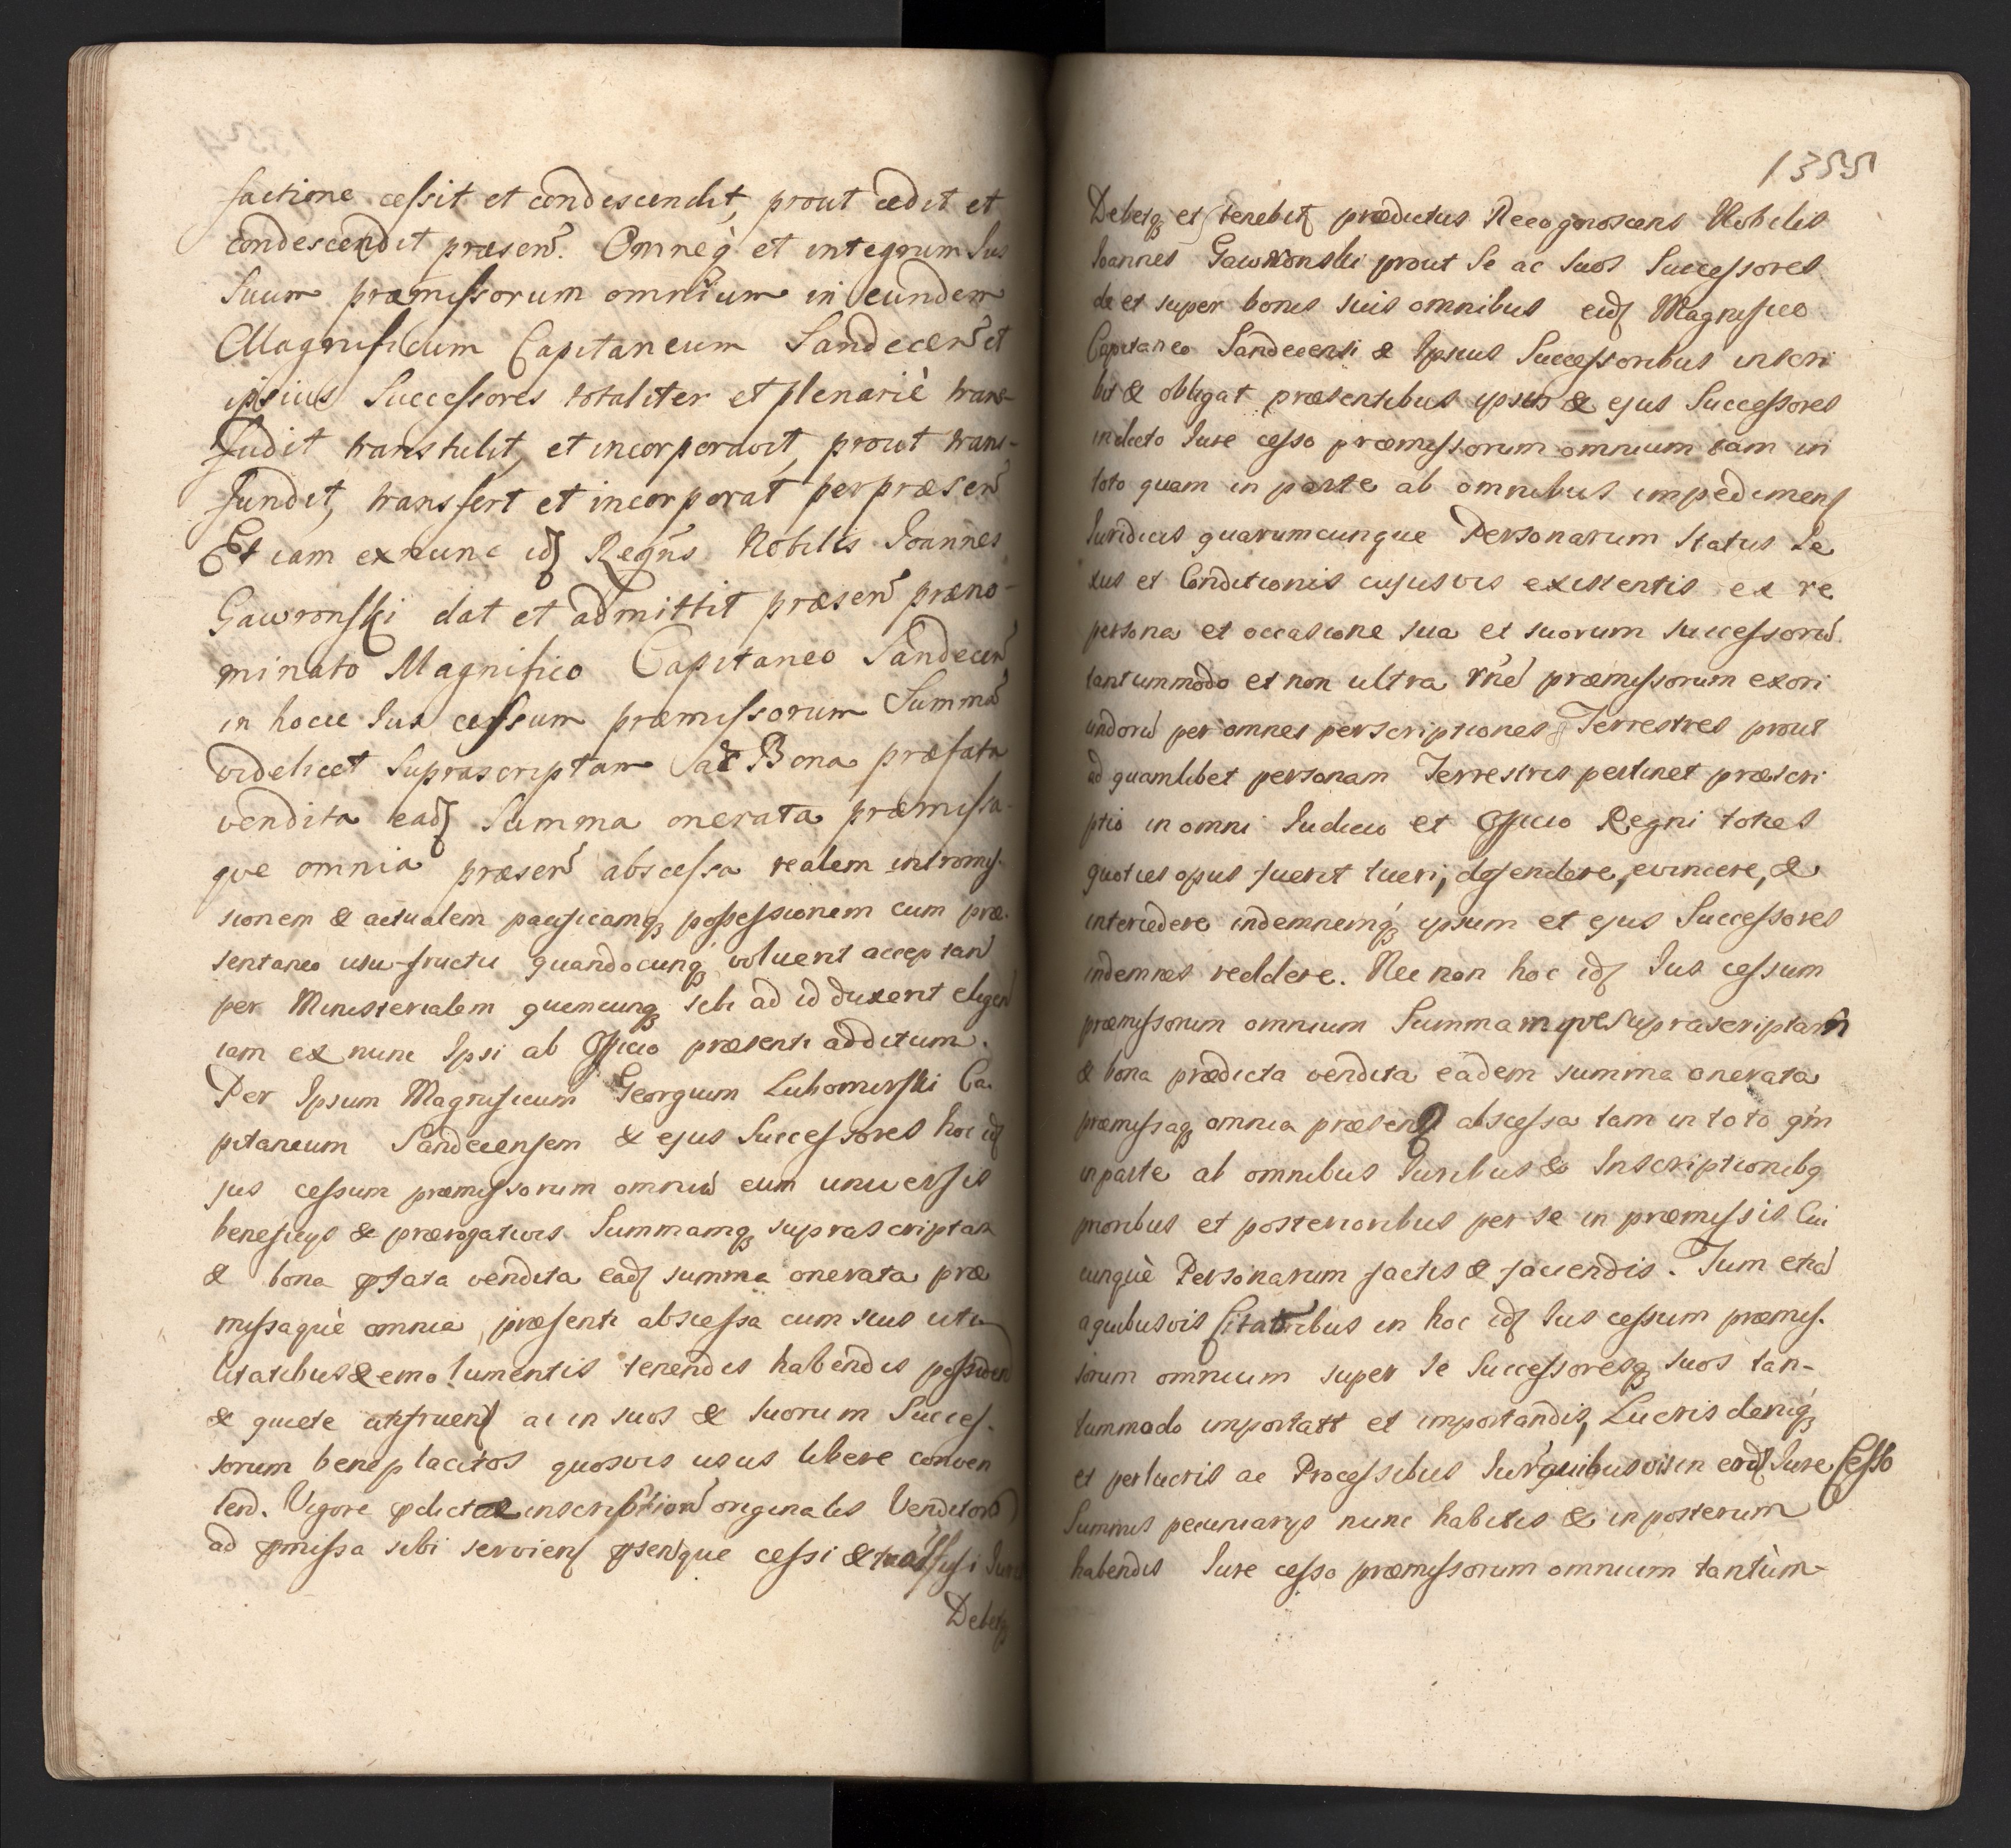 factione cessit et condescendit, prout cedit et
condescendit præsen. Omneq et integrum Jus
Suum præmissorum omnium in eundem
Magnificum Capitaneum Sandecen et
ipsius Successores totaliter et plenariè trans-
fudit transtulit, et incorporavit, prout trans-
fundit, transfert et incorporat per præsen
Et iam ex nunc id Regns Nobilis Joannes
Gawronski dat et admittit præsen præno-
minato Magnifico Capitaneo Sandecen
in hocce Jus cessum præmissorum Summa
videlicet Suprascriptam ac Bona præfata
vendita ead Summa onerata præmissa-
que omnia præsen abscessa realem intromis-
sionem & actualem pacificamq possessionem cum præ-
sentaneo usu-fructu quandocunq voluerit acceptan
per Ministerialem quemcunq sibi ad id duxerit eligen
iam ex nunc Ipsi ab Officio præsenti additum.
Per Ipsum Magnificum Georgium Lubomirski Ca-
pitaneum Sandecensem & ejus Successores hoc id
jus cessum præmissorum omniu cum universis
beneficijs & prærogativis Summamq suprascriptam
& bona pfata vendita ead summa onerata præ
missaquè omnia præsenti abscessa cum suis uti
litatibus & emolumentis tenendis habendis possiden
& quiete utifruen ac in suos & suorum Succes-
sorum beneplacitos quosvis usus libere conver
tend. Vigore pdictæ inscription originalis Venditoris
ad pmissa sibi servien psenque cessi & transfusi Juris
Debetq
1355
Debetq et tenebit prædictus Recognoscens Nobilis
Joannes Gawronski prout Se ac Suos Successores
de et super bonis suis omnibus eid Magnifico
Capitaneo Sandecensi & Ipsius Successoribus inscri
bit & obligat præsentibus ipsum & ejus Successores
in dicto Jure cesso præmissorum omnium tam in
toto quam in parte ab omnibus impedimen
Juridicis quarumcunque Personarum Status Se
xus et Conditionis cujusvis existentis ex re
persona et occasione sua et suorum successoru
tantummodo et non ultra rne præmissorum exori
undoru per omnes perscriptiones Terrestres prout
ad quamlibet personam Terrestris pertinet præscri
ptio in omni Judicio et Officio Regni toties
quoties opus fuerit tueri, defendere, evincere, &
intercedere indemnemq ipsum et ejus Successores
indemnes reddere. Nec non hoc id Jus cessum
præmissorum omnium Summamque Suprascriptam
& bona prædicta vendita eadem summa onerata
præmissaq omnia præsen abscessa tam in toto qm
in parte ab omnibus Juribus & Inscriptionibq
prioribus et posterioribus per se in præmissis Cui
cunquè Personarum factis & faciendis. Tum etia
a quibusvis Citationibus in hoc id Jus cessum præmis-
sorum omnium super se Successoresq suos tan-
tummodo importatt et importandis, Lucris deniq
et perlucris ac Processibus Jur quibusvis in eod Jure Cesso
Summis pecuniarijs nunc habitis & in posterum
habendis Jure cesso præmissorum omnium tantùm-